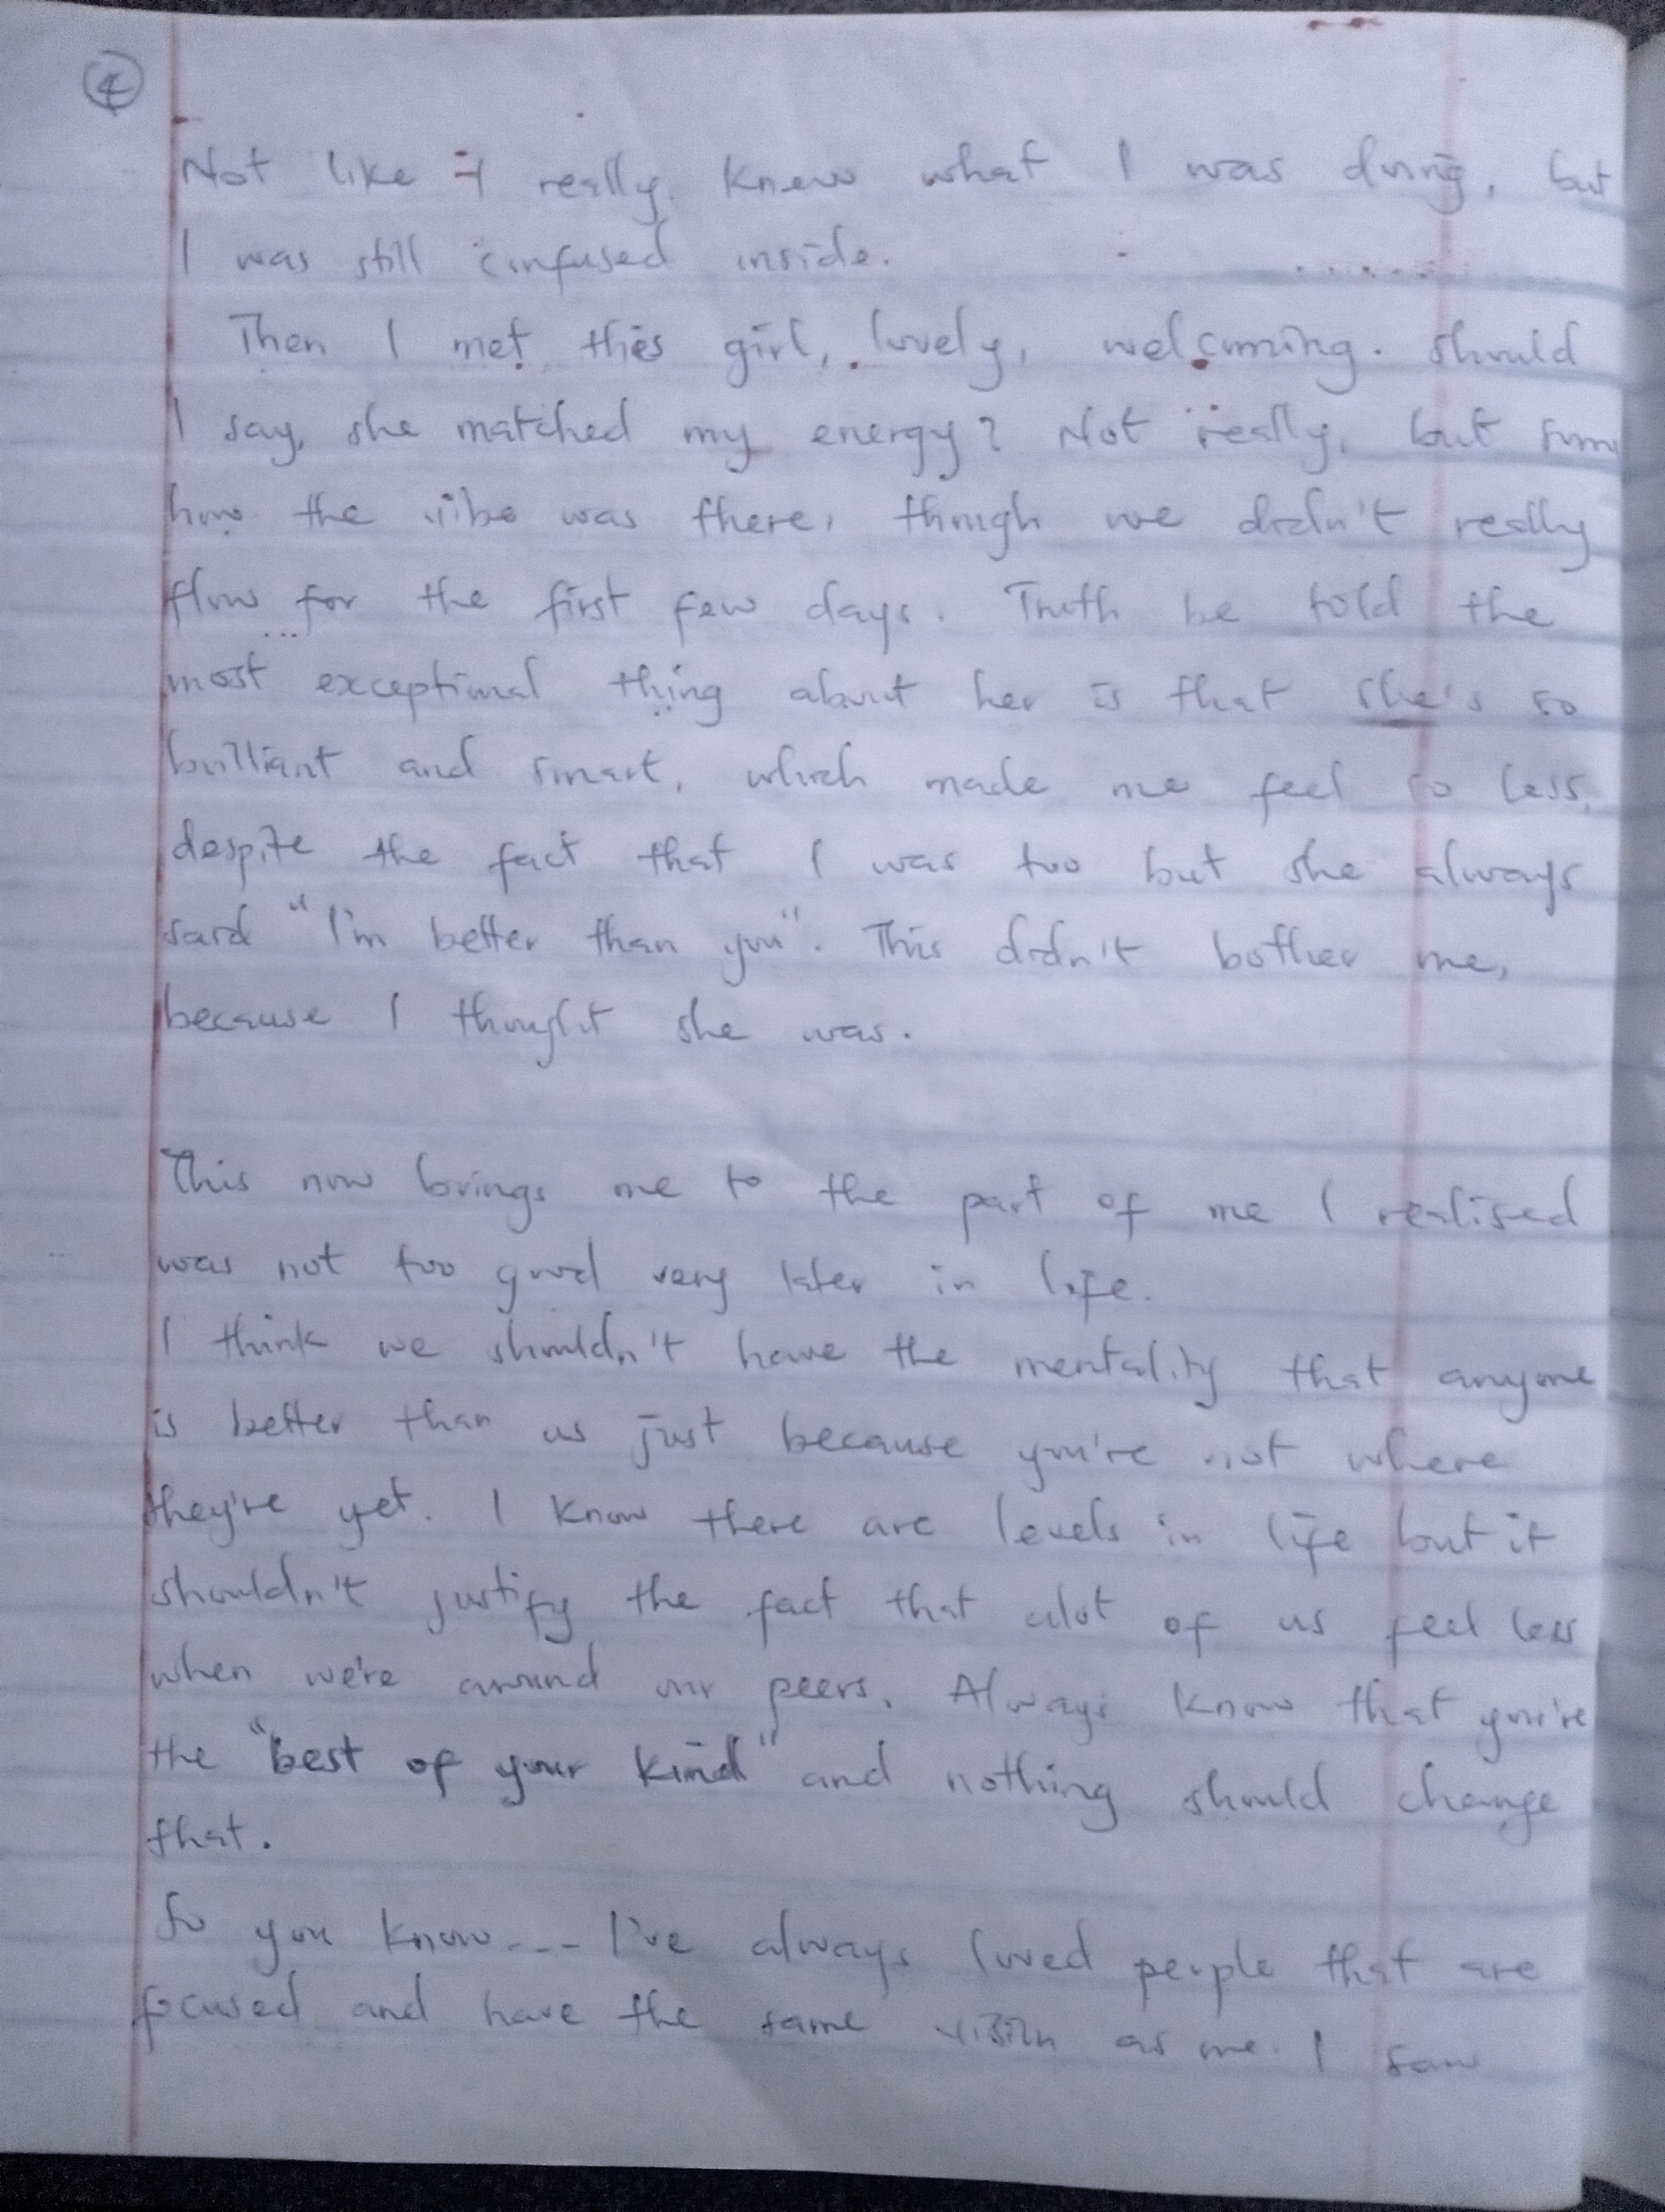 4
Not like I really knew what I was doing, but
I was still confused inside.
Then I met this girl, lovely, welcoming. Should
I say, she matched my energy? Not really, but some
how the vibe was there, though we didn't really
flow for the first few days. Truth be told the
most exceptional thing about her is that she's so
brilliant and smart, which made me feel so less,
despite the fact that I was too but she always
said "I'm better than you". This didn't bother me,
because I thought she was.
This now brings me to the part of me I realised
was not too good very later in life.
I think we shouldn't have the mentality that anyone
is better than us just because you're not where
they're yet. I know there are levels in life but it
shouldn't justify the fact that alot of us feel less
when we're around our peers. Always know that you're
the "best of your kind" and nothing should change
that.
So you know --- I've always loved people that are
focused and have the same vision as me. I saw